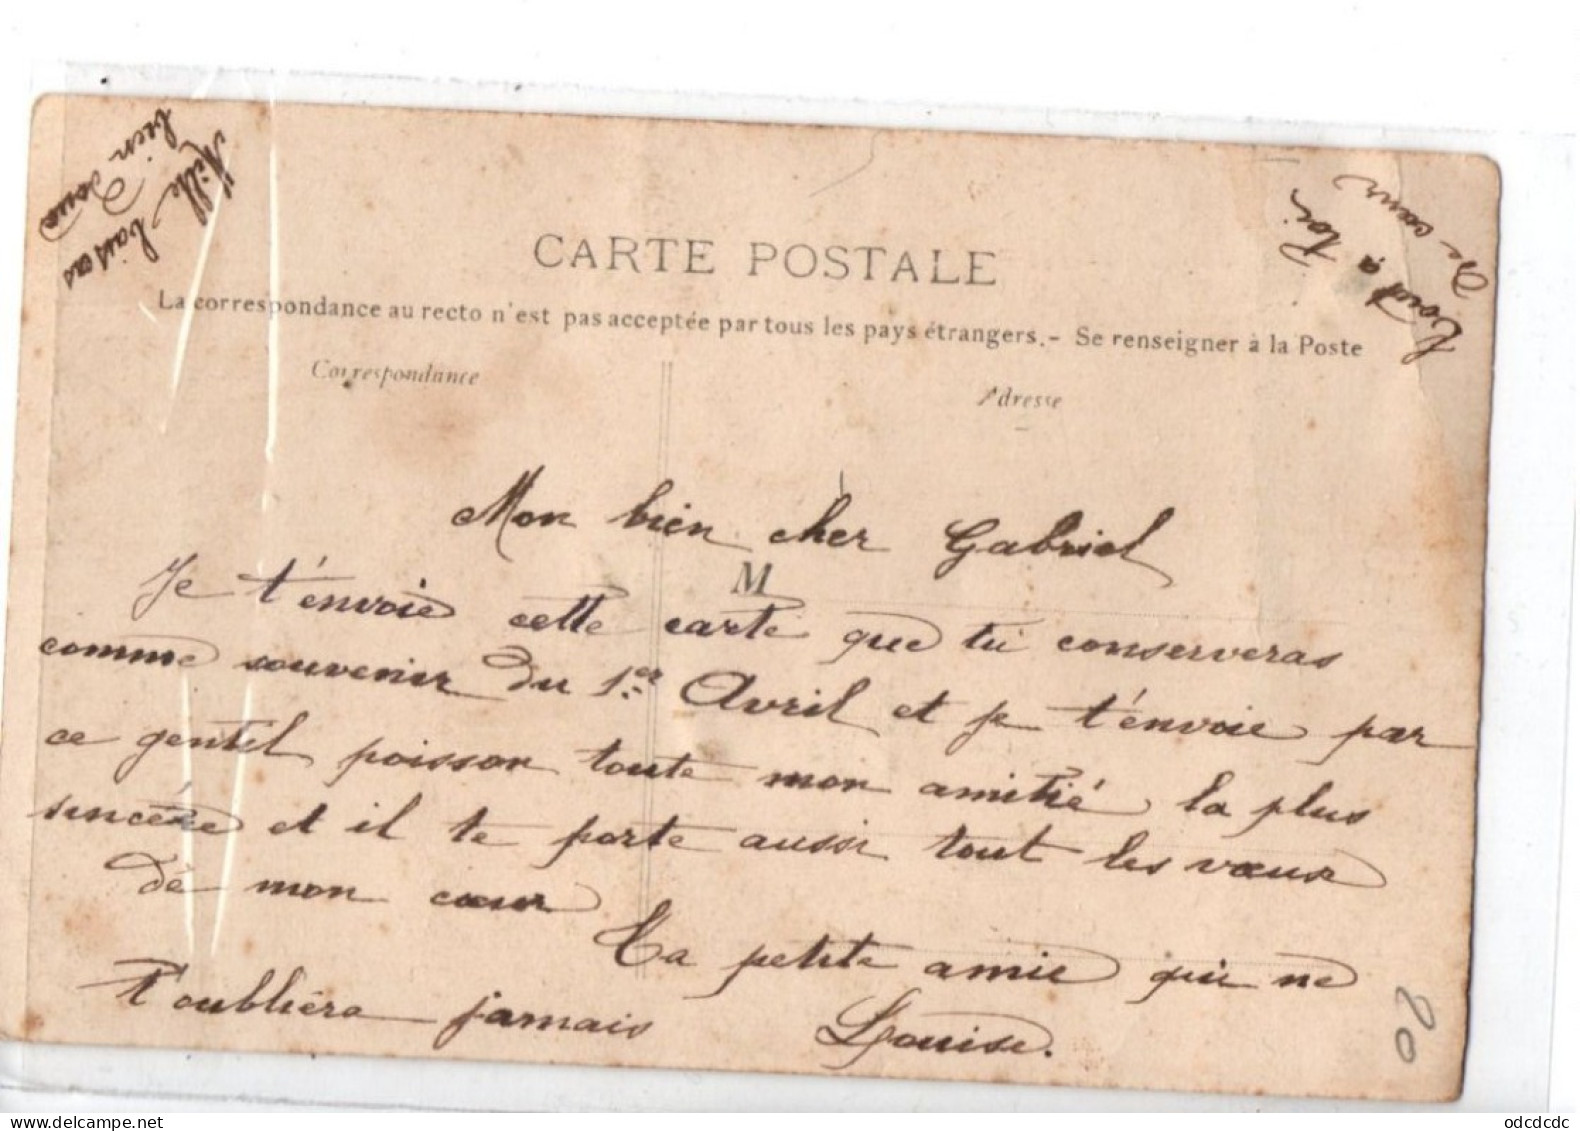 Mille baisers
bien doux
Tout à toi
De cœur
CARTE POSTALE
La correspondance au recto n'est pas acceptée par tous les pays étrangers.- Se renseigner à la Poste
Correspondance
Adresse
Mon bien cher Gabriel
M
Je t'envoie cette carte que tu conserveras
comme souvenir du 1er Avril et je t'envoie par
ce gentil poisson toute mon amitié la plus
sincére et il te porte aussi tout les vœux
de mon cœur
Ta petite amie qui ne
t'oubliera jamais Louise.
20
odcdcdc